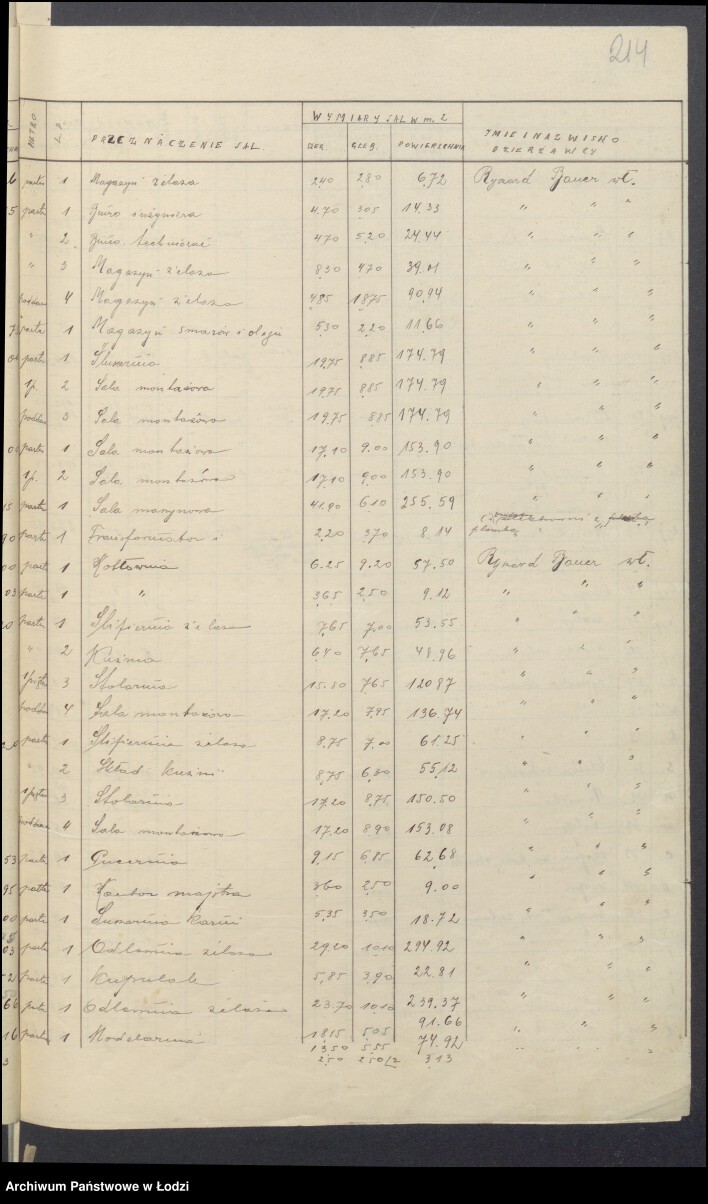 214
WYMIARY SAL W m. 2
PIĘTRO L.P. PRZEZNACZENIE SAL. SZER. GŁĘB. POWIERZCHNIA IMIE I NAZWISKO DZIERŻAWCY
6 parter 1 Magazyn żelaza 2.40 2.80 6.72 Ryszard Bauer wł.
5 parter 1 Biuro inżyniera 4.70 305 14.33 " " "
" 2. Biuro techniczne 470 5.20 24.44 " " "
" 3 Magazyn żelaza 8.30 4.70 39.01 " " "
poddasze 4 Magazyn żelaza 4.85 18.75 90.94 " " "
parter 1 Magazyn smarów i oleju 5.30 2.20 11.66 " " "
parter 1 Ślusarnia 19.75 8.85 174.79 " " "
1p. 2 Sala montażowa 19.75 8.85 174.79 " " "
poddasze 3 Sala montażowa 19.75 8.85 174.79 " " "
parter 1 Sala montażowa 17.10 9.00 153.90 " " "
1p. 2 Sala montażowa 17.10 9.00 153.90 " " "
15 parter 1 Sala maszynowa 41.90 6.10 255.59 " " "
90 parter 1 Transformator i 2.20 3.70 8.14
00 parter 1 Kotłownia 6.25 9.20 57.50 Ryszard Bauer wł.
03 parter 1 " 3.65 2.50 9.12 " " "
parter 1 Szlifiernia żelaza 7.65 7.00 53.55 " " "
" 2 Kuźnia 6.40 7.65 48.96 " " "
1 piętro 3 Stolarnia 15.80 7.65 120 87 " " "
poddasze 4 Sala montażowa 17.20 7.95 136.74 " " "
parter 1 Szlifiernia żelaza 8.75 7.00 61.25 " " "
" 2 Skład kuźni 8.75 6.30 55.12 " " "
1 piętro 3 Stolarnia 17.20 8.75 150.50 " " "
poddasze 4 Sala montażowa 17.20 8.90 153.08 " " "
53 parter 1 9.15 6.85 62.68 " " "
95 parter 1 Kantor majstra 360 2.50 9.00 " " "
00 parter 1 5.35 3.50 18.72 " " "
03 parter 1 Odlewnia żelaza 29.20 10.10 294.92 " " "
parter 1 5.85 3.90 22.81 " " "
66 parter 1 Odlewnia żelaza 23.70 10.10 239.37 " " "
16 parter 1 Modelarnia 18.15 5.05 91.66 " " "
13.50 5.55 74.92
3 2.50 2.50/2 3.13 " " "
Archiwum Państwowe w Łodzi